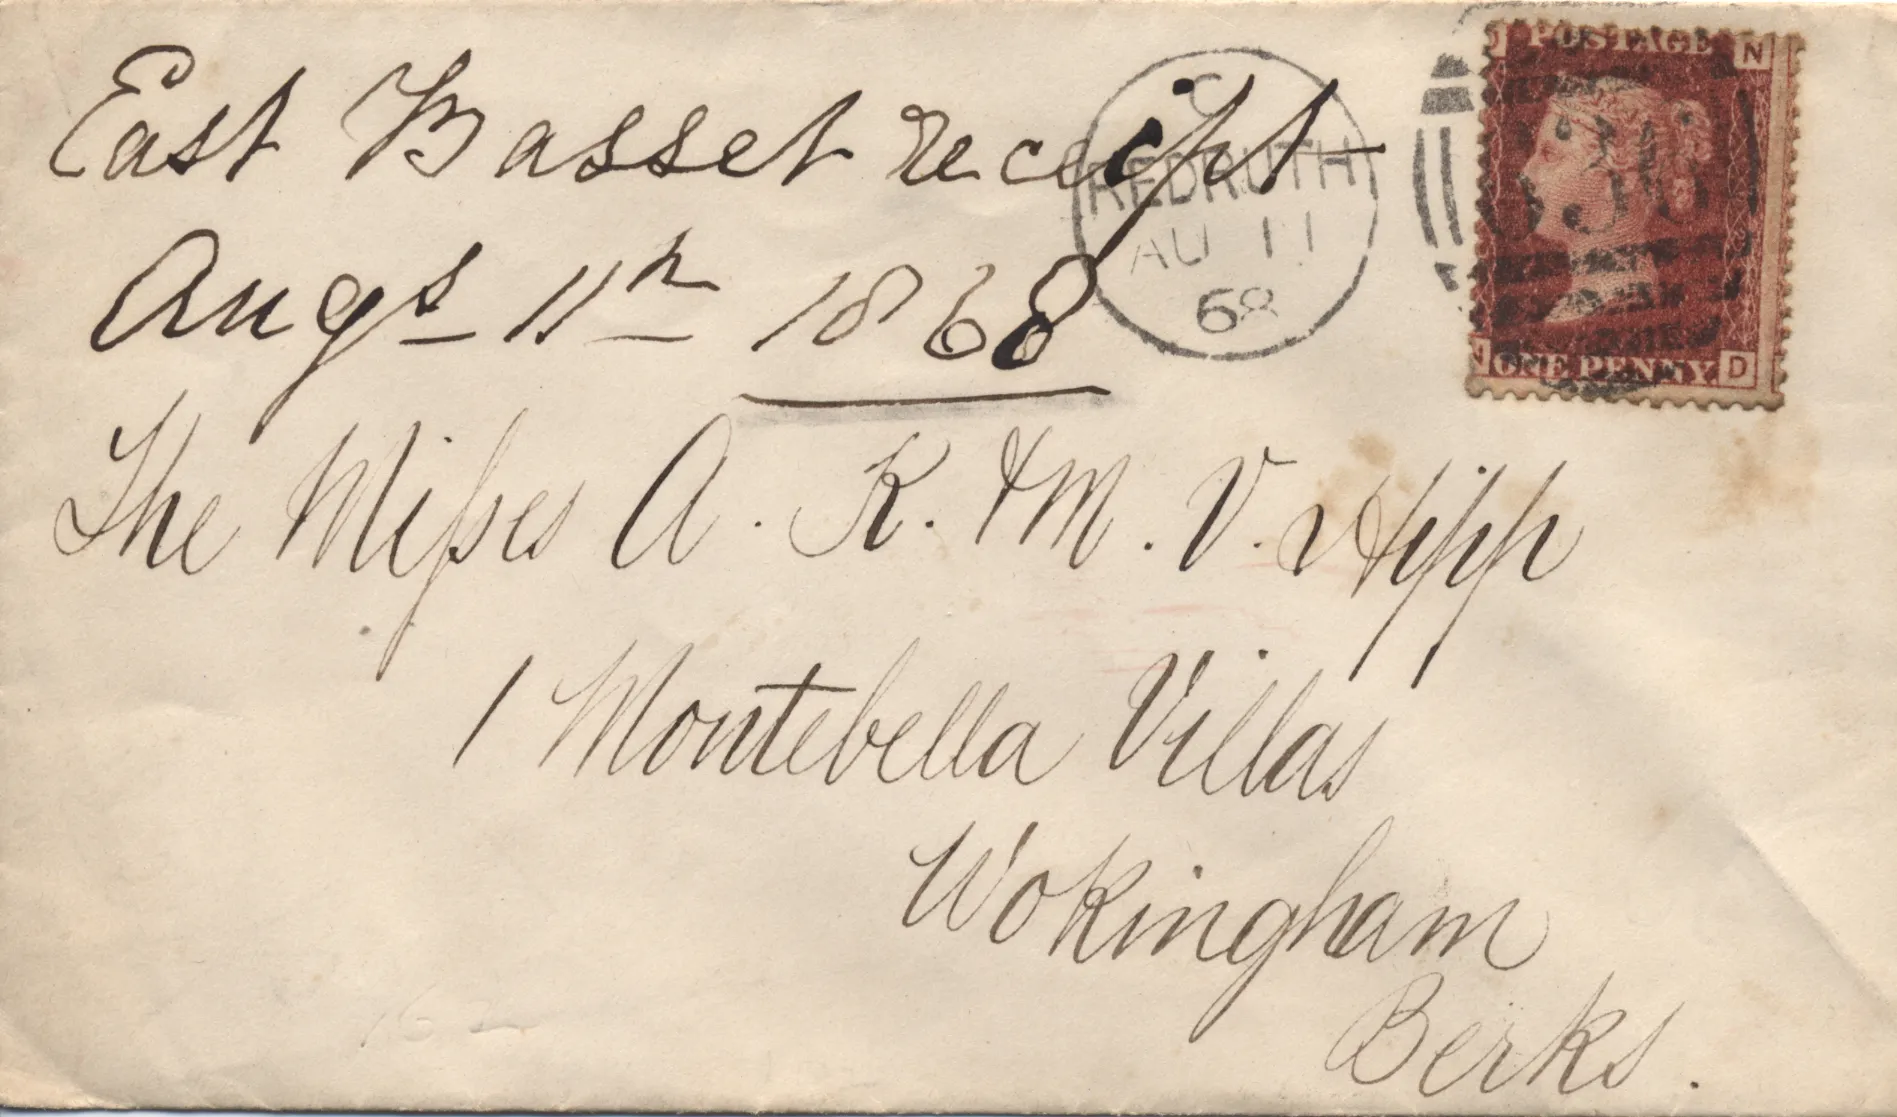 East Basset receipt
Augs 11th 1868
C
REDRUTH
AU 11
68
POSTAGE
N
ONE PENNY
N D
The Misses A. K. & M. V. Hipp
1 Montebella Villas
Wokingham
Berks.
162